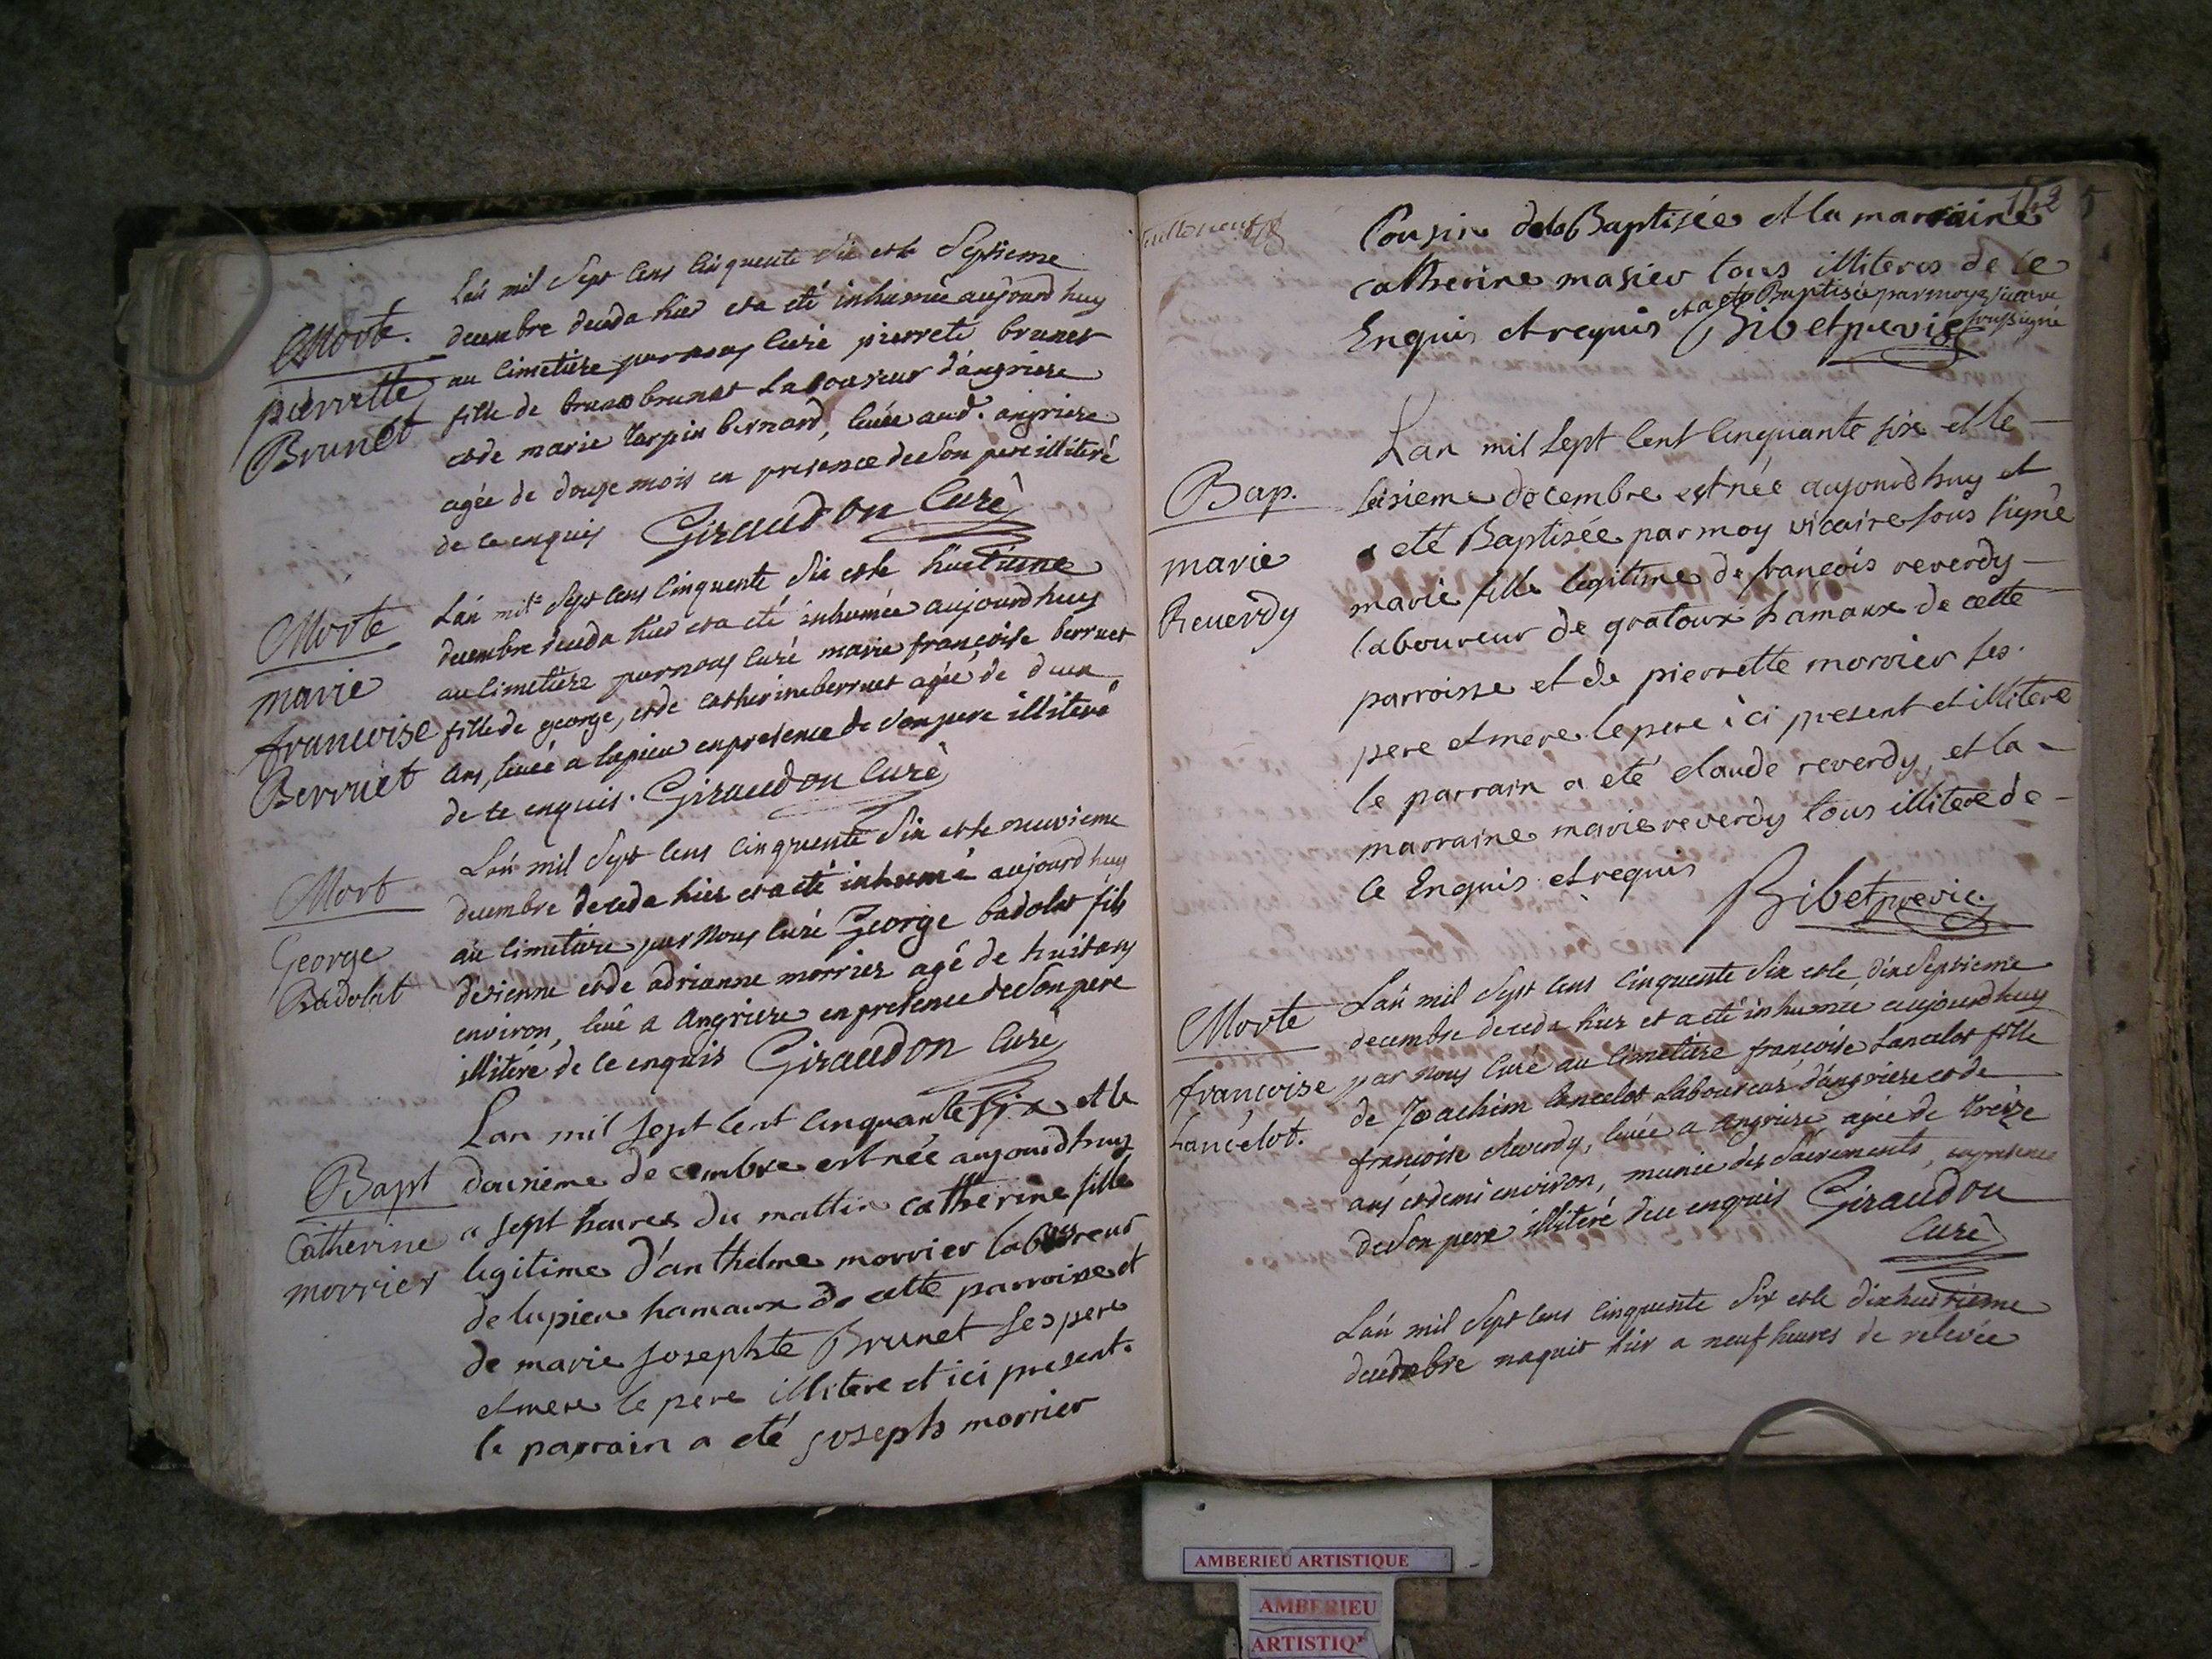 Morte.
pierrette
Brunet
Lan mil Sept Cens Cinquente Six et le Septieme
decembre deceda hier et a eté inhumée aujourd huy
au Cimetiere par nous Curé pierrete brunet
fille de brunet Laboureur d'angriere
et de marie Tarpin bernard, levée aud. angriere
agée de douze mois en presence de Son pere illiteré
de ce enquis Giraudon Curé
Morte
marie
francoise
Berruet
Lan mil Sept Cens Cinquente Six et le huitieme
decembre deceda hier et a eté inhumée aujourd huy
au Cimetiere par nous Curé marie françoise berruet
fille de george, et de Catherine berruet agée de deux
ans, levée a lupieu en presence de Son pere illiteré
de ce enquis. Giraudon Curé
Mort
George
Badolat
Lan mil Sept Cens Cinquente Six et le neuvieme
decembre deceda hier et a eté inhumé aujourd huy
au Cimetiere par Nous Curé George badolat fils
d'etienne et de adrianne morrier agé de huit ans
environ, levé a Angriere en presence de Son pere
illiteré de ce enquis Giraudon Curé
Bapt
Catherine
morrier
Lan mil Sept Cent Cinquante Six et le
dousieme decembre est née aujourdhuy
a sept heures du mattin catherine fille
legitime d'anthelme morrier laboureur
de lupieu hamaux de cette parroisse et
de marie josephte Brunet ses pere
et mere le pere illitere et ici present.
le parrain a eté joseph morrier
Cousin de la Baptisée et la marraine
catherine masier tous illiteres de ce
Enquis et requis et a eté Baptisée par moy vicaire soussigné
Ribet previc
Bap.
marie
Reverdy
Lan mil Sept Cent Cinquante six et le
seisieme decembre est née aujourdhuy et
a eté Baptisée par moy vicaire sous signé
marie fille legitime de francois reverdy
laboureur de gratoux hamaux de cette
parroisse et de pierrette morrier ses
pere et mere le pere ici present et illitere
le parrain a eté claude reverdy, et la
marraine marie reverdy tous illitere de
ce Enquis et requis
Ribet previc.
Morte
francoise
Lancelot.
Lan mil Sept Cens Cinquente Six et le dixSeptieme
decembre deceda hier et a eté inhumée aujourdhuy
par nous Curé au Cimetiere francoise Lancelot fille
de Joachim Lancelot Laboureur d'angriere et de
francoise Reverdy, levée a Angriere, agée de treize
ans et demi environ, munie des Sacrements, en presence
de Son pere illiteré de ce enquis Giraudon
Curé
Lan mil Sept Cens Cinquente Six et le dixhuitieme
decembre naquit hier a neuf heures de relevée
AMBERIEU ARTISTIQUE
AMBERIEU
ARTISTIQ